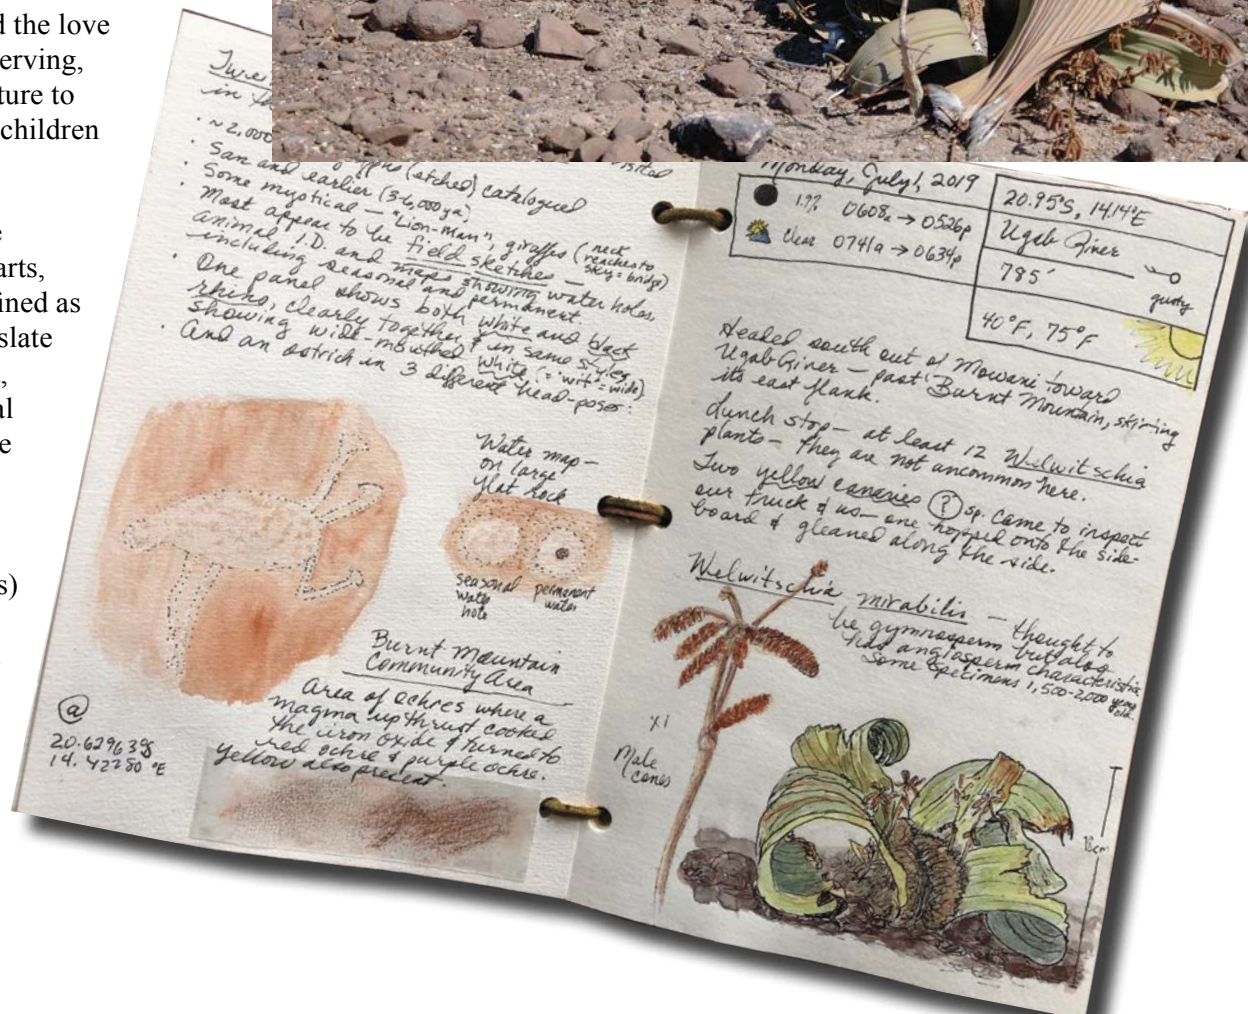 d the love
erving,
ture to
children
e
arts,
ined as
slate
al
e
s)
in th
~2,000 visited
(etched) catalogued
San and earlier (3-6,000 ya)
Some mystical – "Lion-man", giraffes (neck reaches to sky = bridge)
Most appear to be field sketches –
animal I.D. and maps showing water holes,
including seasonal and permanent.
One panel shows both white and black
rhino, clearly together, & in same style,
showing wide-mouthed white (= "wit" = wide)
And an ostrich in 3 different head-poses:
Water map –
on large
flat rock
seasonal
water
hole
permanent
water
Burnt Mountain
Community Area
Area of ochres where a
magma upthrust cooked
the iron oxide & turned to
red ochre & purple ochre.
Yellow also present.
@
14. °E
Monday, July 1, 2019
1.7% 0608a → 0526p
Clear 0741a → 0639p
20.95°S, 14.14°E
Ugab River
785'
gusty
40°F, 75°F
Headed south out of Mowani toward
Ugab River – past Burnt Mountain, skirting
its east flank.
Lunch stop – at least 12 Welwitschia
plants – they are not uncommon here.
Two yellow canaries (?) sp. came to inspect
our truck & us – one hopped onto the side-
board & gleaned along the side.
Welwitschia mirabilis – thought to
be gymnosperm but also
has angiosperm characteristics
Some specimens 1,500-2,000 years
old.
x1
Male
cones